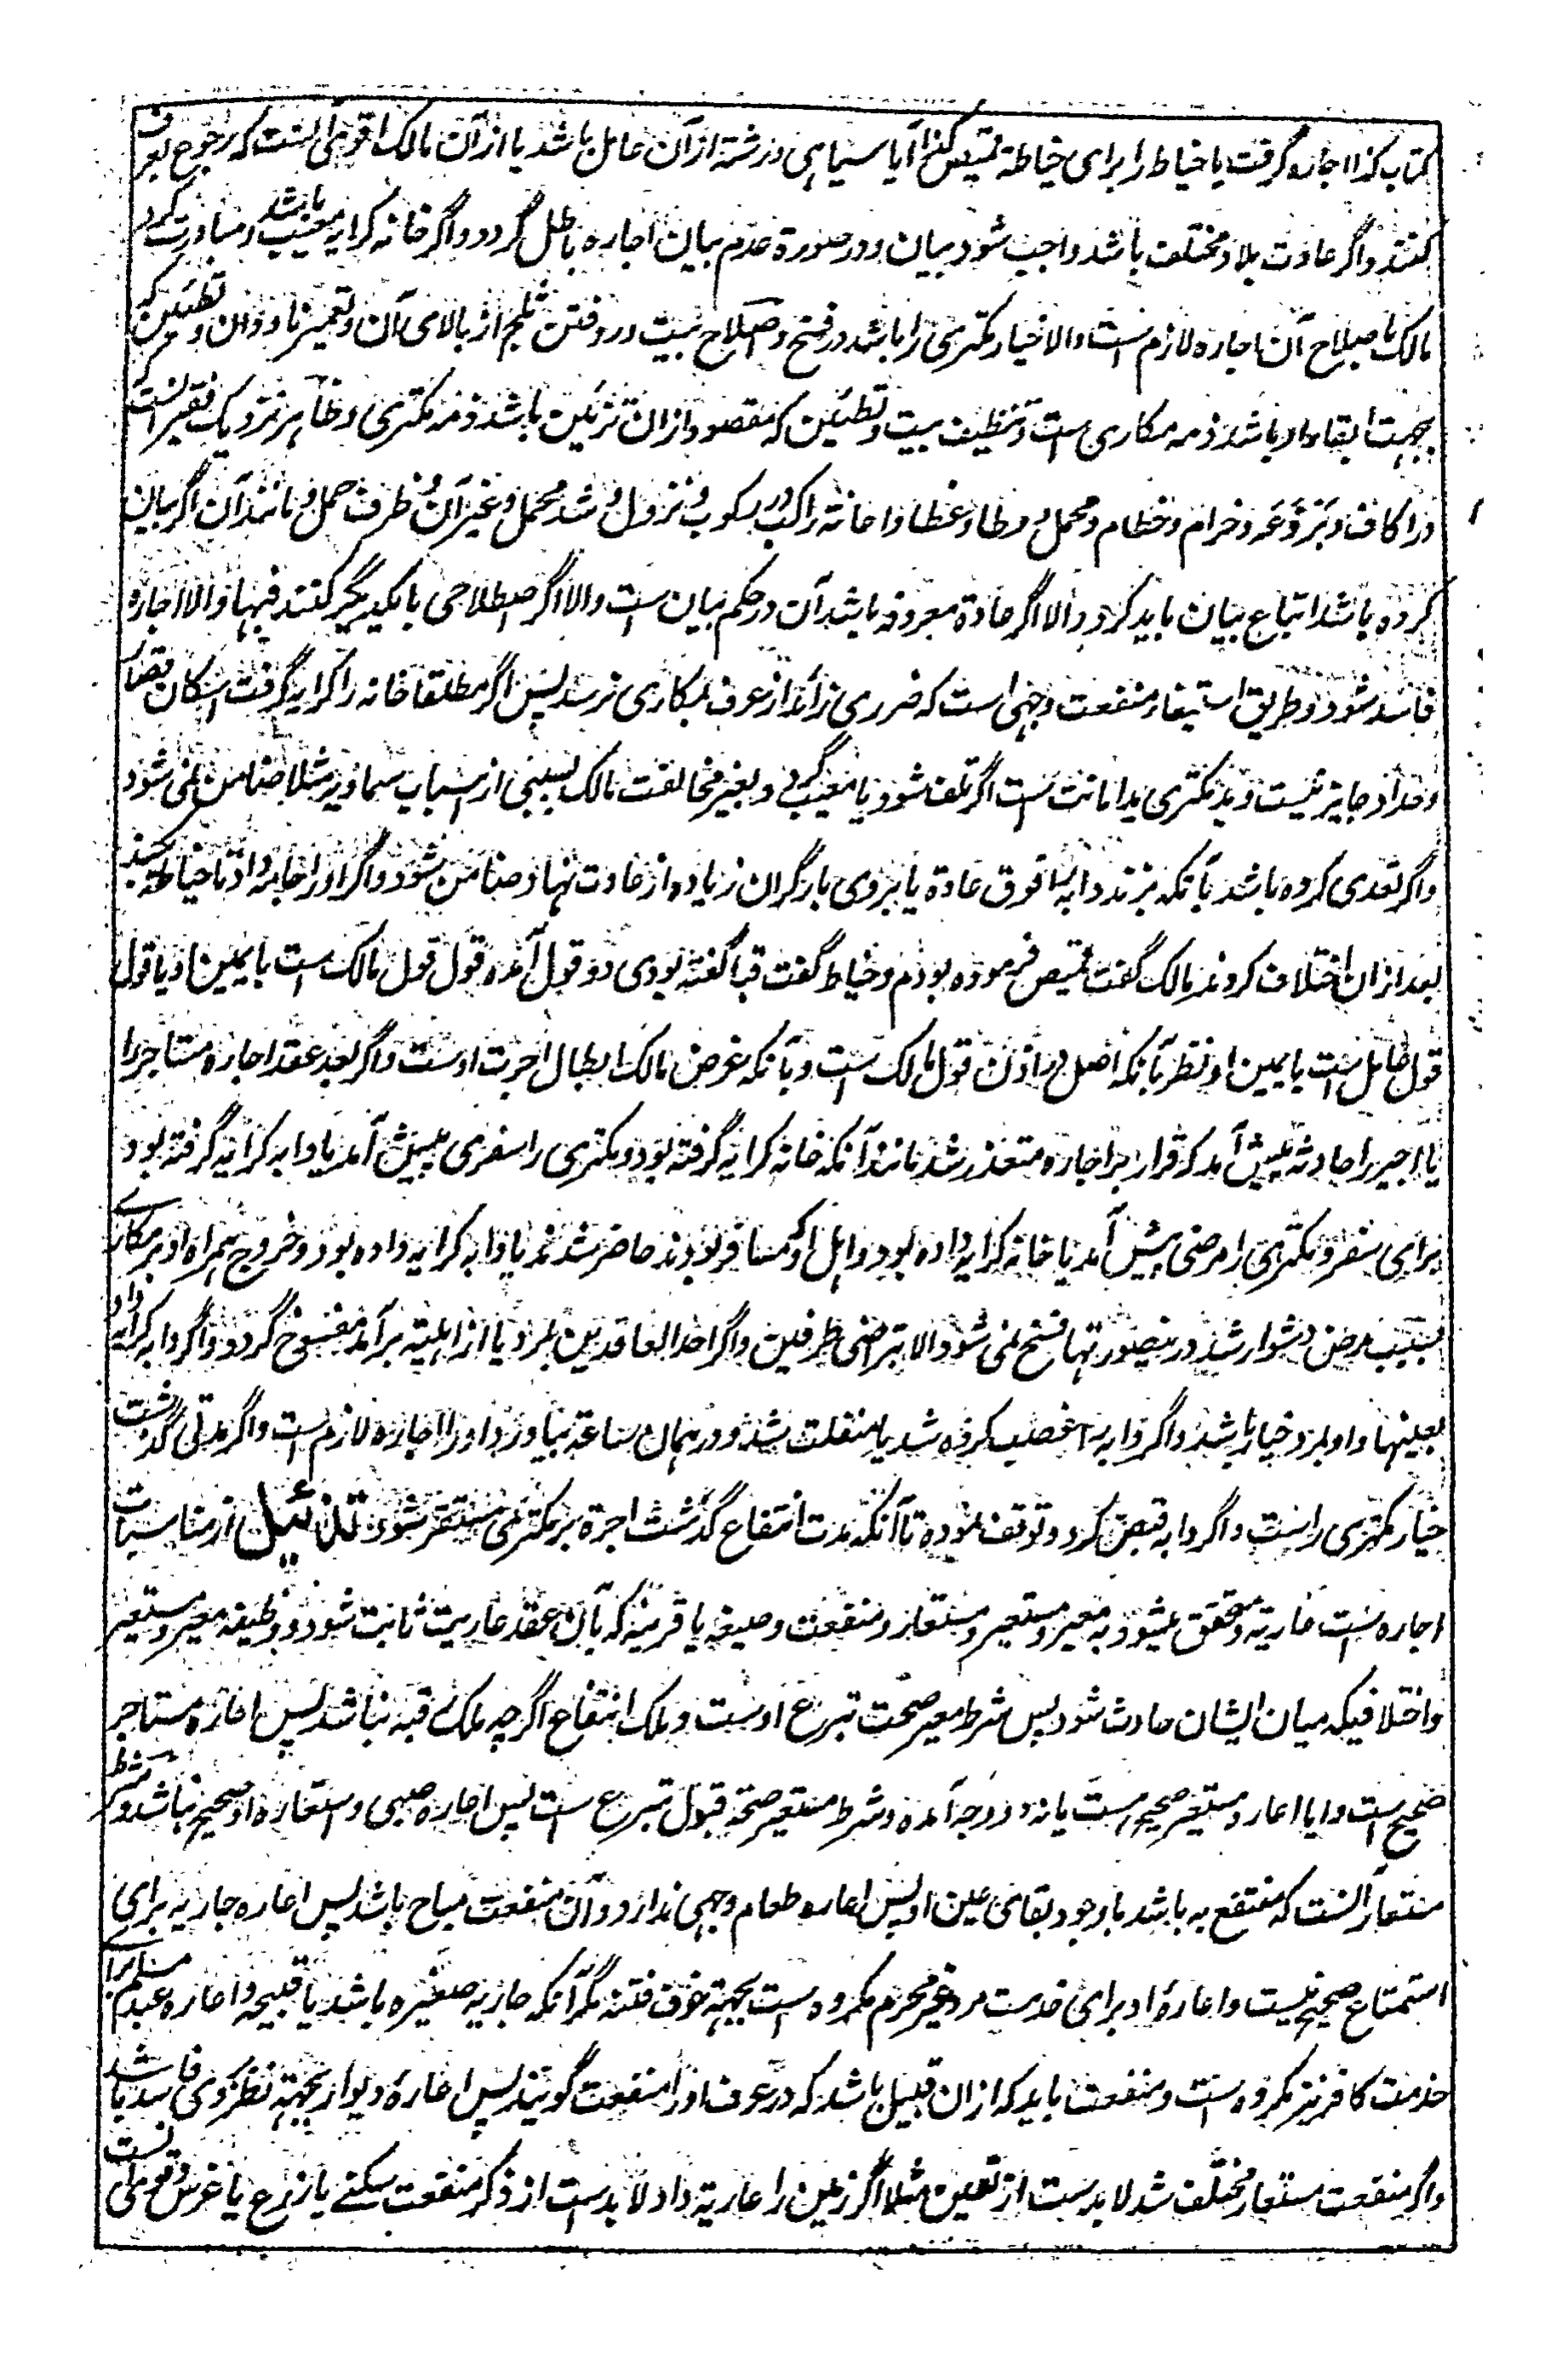 کتاب کذا اجاره گرفت یا خیاط را برای خیاطة قمیص کذا آیا سیاهی و رشته از آن عامل باشد یا از آن مالک اقوی آنست که رجوع بعرف
کنند و اگر عادت بلاد مختلف باشد واجب شود بیان و در صورة عدم بیان اجاره باطل گردد و اگر خانه کرایه معیب باشد و مبادرت کرد
مالک باصلاح آن اجاره لازم است و الا خیار مکتری را باشد در فسخ و اصلاح بیت و رروفتن ثلج از بالای آن و تعمیر ناودان و تطیین که
بجهت ابقاء او باشد ذمه مکاری است و تنظیف بیت و تطیین که مقصود ازان تزیین باشد ذمه مکتری و ظاهر نزدیک فقیر آنست
در اکاف و برذعه و خرام و خطام و محمل و وطا و غطا و اعانة راکب در رکوب و نزول و شد محمل و غیر آن و ظرف حمل و مانند آن اگر بیان
کرده باشد اتباع بیان باید کرد و الا اگر عادة معروفه باشد آن در حکم بیان است و الا اگر اصطلاحی با یکدیگر کنند فبها و الا اجاره
فاسد شود و طریق استیفاء منفعت وجهی است که ضرری زائد از عرف بمکاری نرسد پس اگر مطلقا خانه را کرایه گرفت اسکان قصار
و حداد جایز نیست و ید مکتری ید امانت است اگر تلف شود یا معیب گردد بغیر مخالفت مالک بسببی از اسباب سماویه مثلا ضامن نمی شود
و اگر تعدی کرده باشد بآنکه بزند دابه را فوق عادة یا بروی بار گران زیاده از عادت نهاد ضامن شود و اگر او را جامه داد تا خیاطه کند
بعد ازان اختلاف کردند مالک گفت قمیص فرموده بودم و خیاط گفت قبا گفته بودی دو قول آمده قول قول مالک است با یمین او یا قول
قول عامل است با یمین او نظر بآنکه اصل در اذن قول مالک است و بآنکه غرض مالک ابطال اجرت اوست و اگر بعد عقد اجاره مستاجر را
یا اجیر را حادثه پیش آمد که قرار بر اجاره متعذر شد مانند آنکه خانه کرایه گرفته بود و مکتری را سفری پیش آمد یا دابه کرایه گرفته بود
برای سفر و مکتری را مرضی پیش آمد یا خانه کرایه داده بود و اهل او که مسافر بودند حاضر شدند یا دابه کرایه داده بود و خروج همراه او بر مکاری
بسبب مرض دشوار شد درینصورتها فسخ نمی شود الا بتراضی طرفین و اگر احد العاقدین بمرد یا از اهلیة برآمد مفسوخ گردد و اگر دابه کرایه داد
بعینها و او بمرد خیار باشد و اگر دابه را غصب کرده شد یا منفلت شد و در همان ساعة بیاورد او را اجاره لازم است و اگر مدتی گذشت
خیار مکتری راست و اگر دابه قبض کرد و توقف نموده تا آنکه مدت انتفاع گذشت اجرة بر مکتری مستقر شود تذئیل از مناسبات
اجاره است عاریة و متحقق میشود به معیر و مستعیر و مستعار و منفعت و صیغه یا قرینه که بآن عقد عاریت ثابت شود و وظیفه معیر و مستعیر
و اختلافیکه میان ایشان حادث شود پس شرط معیر صحت تبرع اوست و ملک انتفاع اگرچه ملک رقبه نباشد پس اعاره مستاجر
صحیح است و ایا اعاره مستعیر صحیح است یا نه دو وجه آمده و شرط مستعیر صحة قبول تبرع است پس اعاره صبی و استعاره او صحیح نباشد و شرط
مستعار آنست که منتفع به باشد باوجود بقای عین او پس اعاره طعام وجهی ندارد و آن منفعت مباح باشد پس اعاره جاریه برای
استمتاع صحیح نیست و اعاره او برای خدمت مرد غیر محرم مکروه است بجهة خوف فتنه مگر آنکه جاریه صغیره باشد یا قبیحه و اعاره عبد مسلم برای
خدمت کافر نیز مکروه است و منفعت باید که ازان قبیل باشد که در عرف او را منفعت گویند پس اعاره دیوار بجهة نظر کردن فاسد باشد
و اگر منفعت مستعار مختلف شد لابد است از تعیین مثلا اگر زمین را عاریة داد لابد است از ذکر منفعت سکنے یا زرع یا غرس و قوی آنست